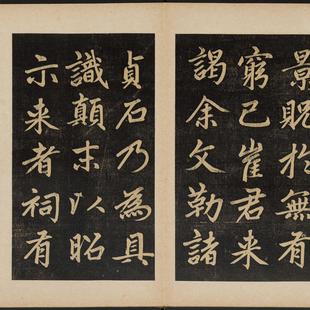 景貺於無有
窮已崔君来
謁余文勒諸
貞石乃為具
識顛末以昭
示来者祠有